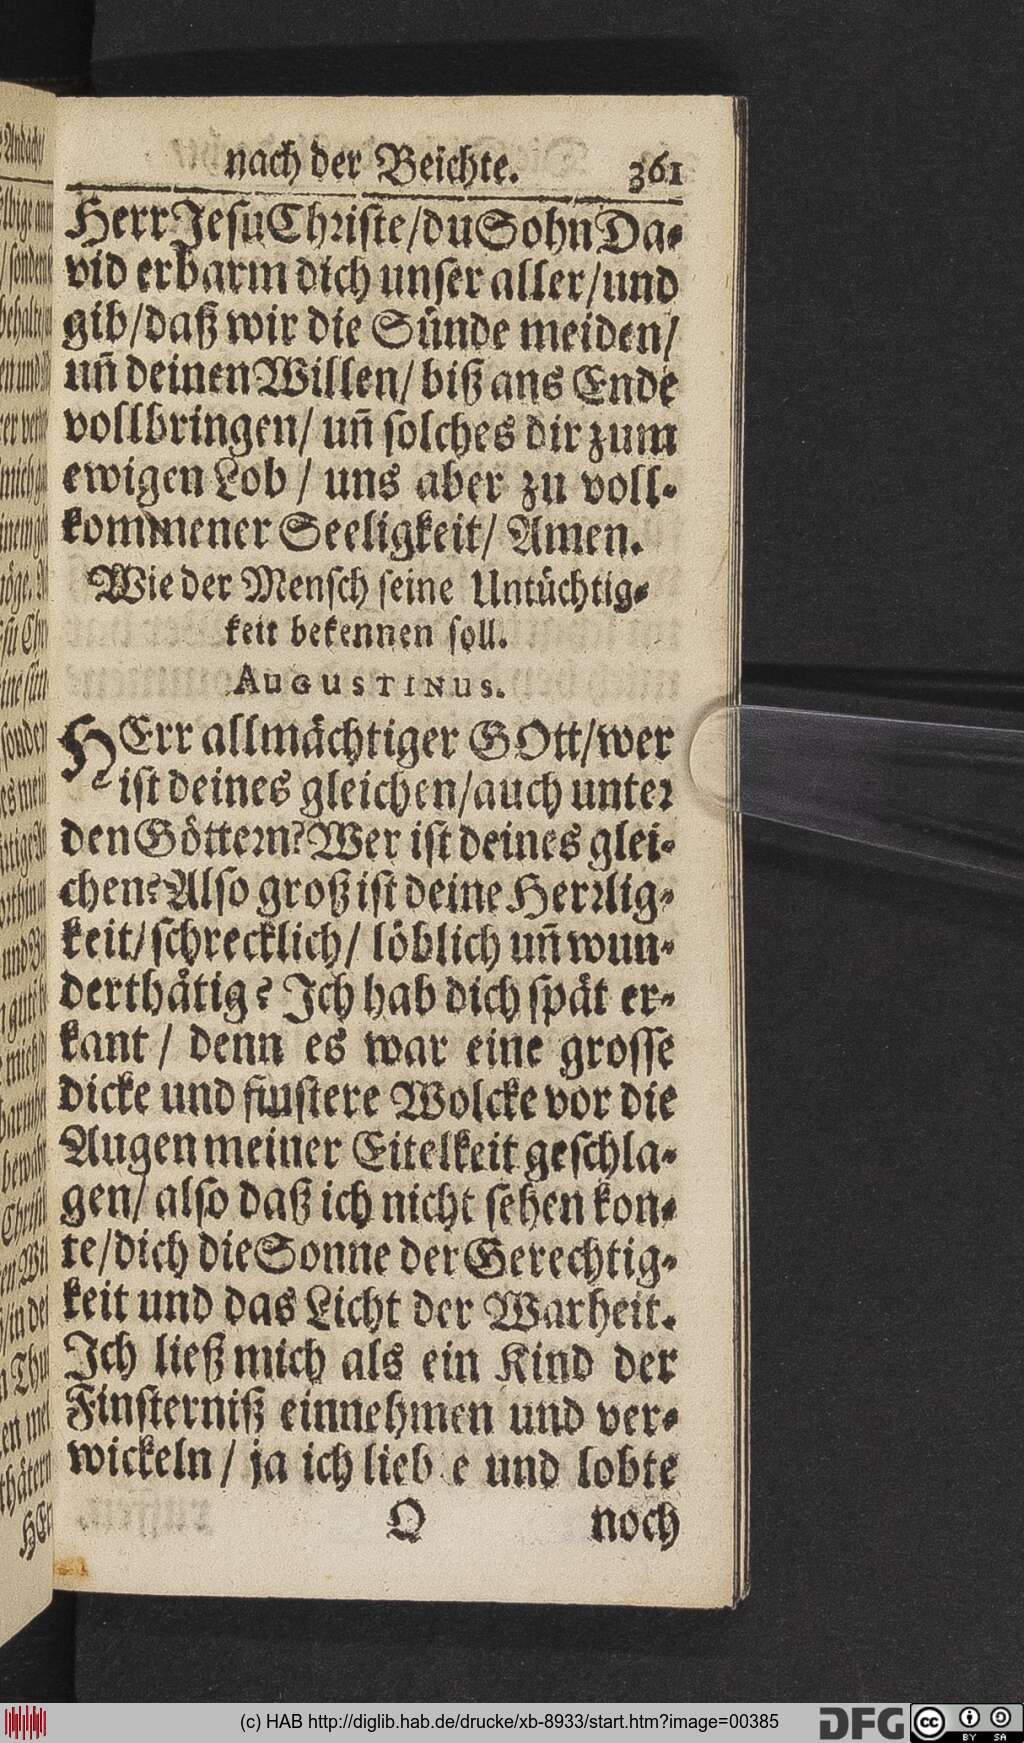 nach der Beichte. 361
Herr Jesu Christe/du Sohn Da-
vid erbarm dich unser aller/und
gib/daß wir die Sünde meiden/
uñ deinen Willen/ biß ans Ende
vollbringen/ uñ solches dir zum
ewigen Lob / uns aber zu voll-
kommener Seeligkeit/ Amen.
Wie der Mensch seine Untüchtig-
keit bekennen soll.
AUGUSTINUS.
HErr allmächtiger GOtt/wer
ist deines gleichen/auch unter
den Göttern? Wer ist deines glei-
chen? Also groß ist deine Herrlig-
keit/schrecklich/ löblich uñ wun-
derthätig? Ich hab dich spät er-
kant / denn es war eine grosse
dicke und finstere Wolcke vor die
Augen meiner Eitelkeit geschla-
gen/ also daß ich nicht sehen kon-
te/dich die Sonne der Gerechtig-
keit und das Licht der Warheit.
Ich ließ mich als ein Kind der
Finsterniß einnehmen und ver-
wickeln / ja ich liebe und lobte
Q noch
(c) HAB http://diglib.hab.de/drucke/xb-8933/start.htm?image=00385
DFG cc BY SA